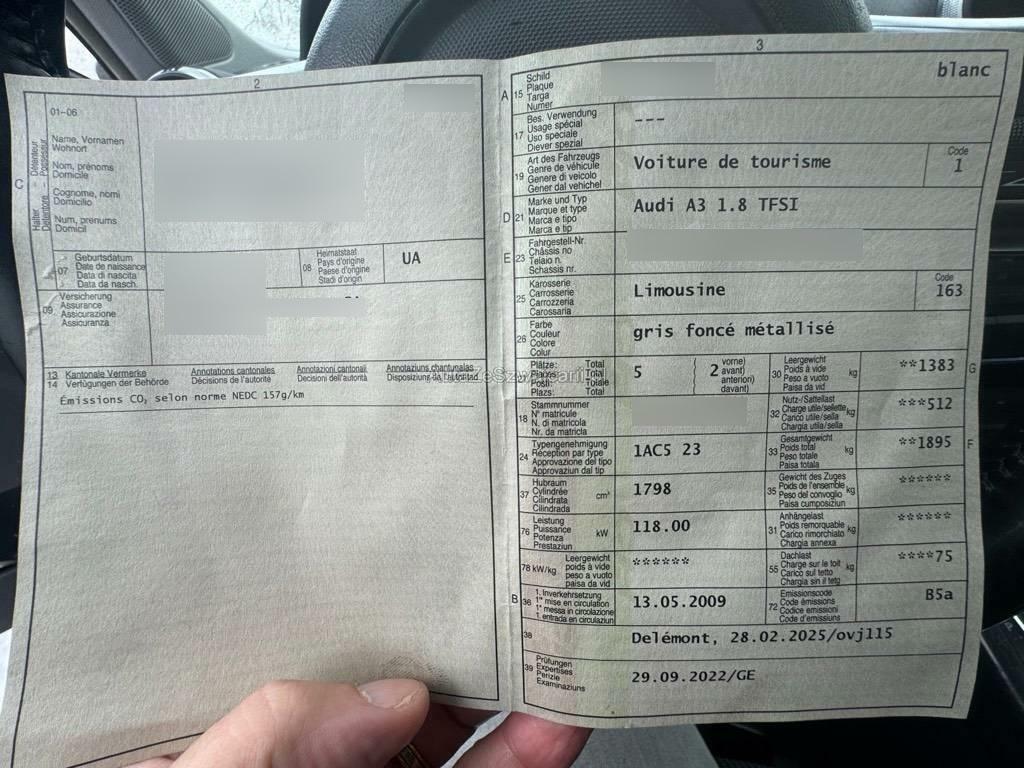 2
C
01–06
Halter - Détenteur
Detentore - Possessur
Name, Vornamen
Wohnort
Nom, prénoms
Domicile
Cognome, nomi
Domicilio
Num, prenums
Domicil
07
Geburtsdatum
Date de naissance
Data di nascita
Data da nasch.
08
Heimatstaat
Pays d'origine
Paese d'origine
Stadi d'origin
UA
09
Versicherung
Assurance
Assicurazione
Assicuranza
13 Kantonale Vermerke
14 Verfügungen der Behörde
Annotations cantonales
Décisions de l'autorité
Annotazioni cantonali
Decisioni dell'autorità
Annotaziuns chantunalas
Disposiziun da l'autoritad
Émissions CO₂ selon norme NEDC 157g/km
3
A 15
Schild
Plaque
Targa
Numer
blanc
17
Bes. Verwendung
Usage spécial
Uso speciale
Diever spezial
---
19
Art des Fahrzeugs
Genre de véhicule
Genere di veicolo
Gener dal vehichel
Voiture de tourisme
Code
1
D 21
Marke und Typ
Marque et type
Marca e tipo
Marca e tip
Audi A3 1.8 TFSI
E 23
Fahrgestell-Nr.
Châssis no
Telaio n.
Schassis nr.
25
Karosserie
Carrosserie
Carrozzeria
Carossaria
Limousine
Code
163
26
Farbe
Couleur
Colore
Colur
gris foncé métallisé
Plätze: Total
Places: Total
Posti: Totale
Plazs: Total
5
2
vorne)
avant)
anteriori)
davant)
30
Leergewicht
Poids à vide
Peso a vuoto
Paisa da vid
kg
**1383
G
18
Stammnummer
N° matricule
N. di matricola
Nr. da matricla
32
Nutz-/Sattellast
Charge utile/sellette
Carico utile/sella
Chargia utila/sella
kg
***512
24
Typengenehmigung
Réception par type
Approvazione del tipo
Approvaziun dal tip
1AC5 23
33
Gesamtgewicht
Poids total
Peso totale
Paisa totala
kg
**1895
F
37
Hubraum
Cylindrée
Cilindrata
Cilindrada
cm³
1798
35
Gewicht des Zuges
Poids de l'ensemble
Peso del convoglio
Paisa cumposiziun
kg
******
76
Leistung
Puissance
Potenza
Prestaziun
kW
118.00
31
Anhängelast
Poids remorquable
Carico rimorchiato
Chargia annexa
kg
******
78 kW/kg
Leergewicht
poids à vide
peso a vuoto
paisa da vid
******
55
Dachlast
Charge sur le toit
Carico sul tetto
Chargia sin il tetg
kg
****75
B 36
1. Inverkehrsetzung
1re mise en circulation
1a messa in circolazione
1. entrada en circulaziun
13.05.2009
72
Emissionscode
Code émissions
Codice emissioni
Code d'emissiuns
B5a
38
Delémont, 28.02.2025/ovj115
39
Prüfungen
Expertises
Perizie
Examinaziuns
29.09.2022/GE